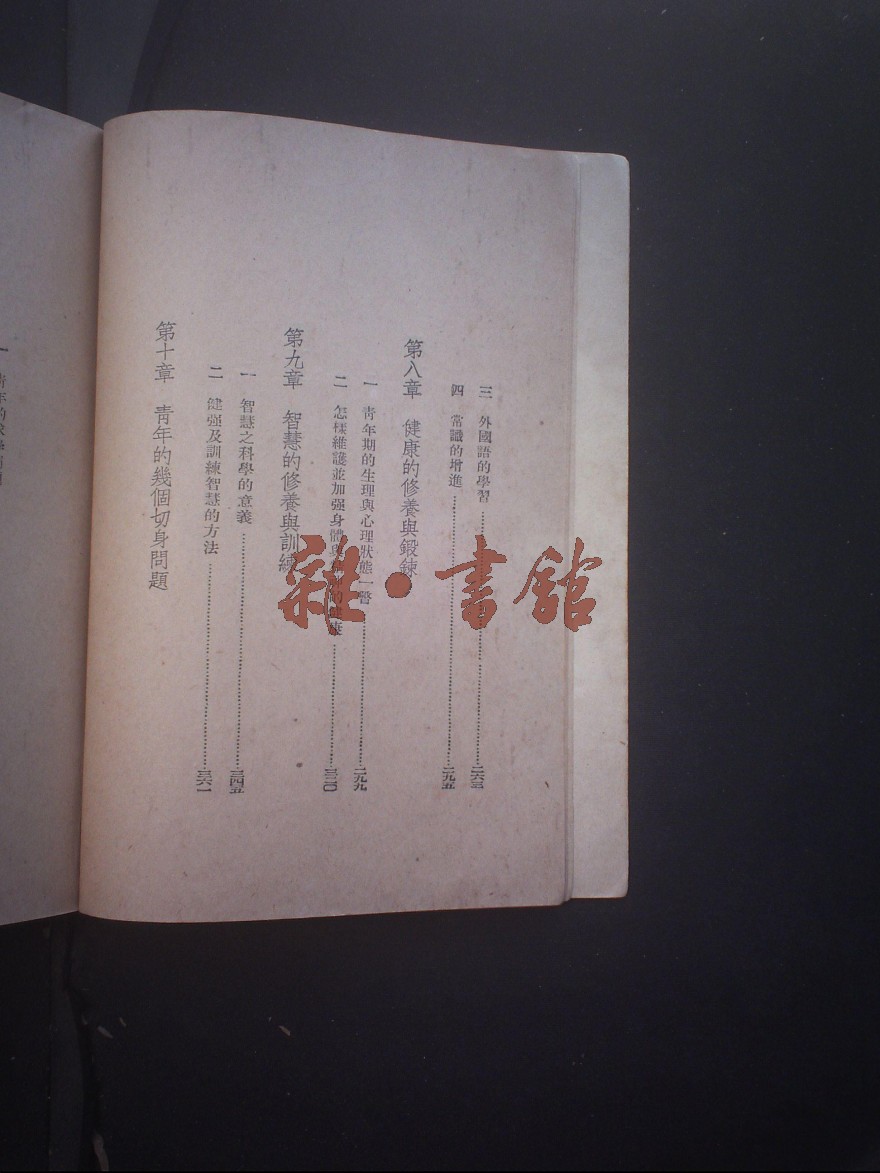 三 外國語的學習……二六三
四 常識的增進……二九五
第八章 健康的修養與鍛鍊
一 青年期的生理與心理狀態一瞥……二九九
二 怎樣維護並加强身體與的健康……三二〇
第九章 智慧的修養與訓練
一 智慧之科學的意義……三四五
二 健强及訓練智慧的方法……三六一
第十章 青年的幾個切身問題
一 青年的
雜·書館